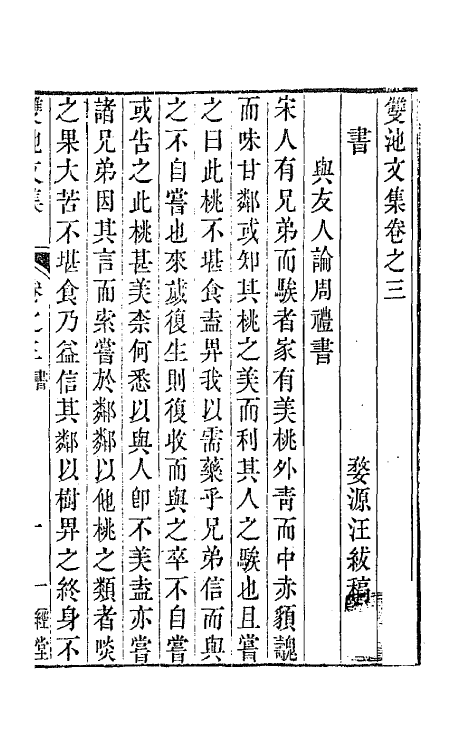 雙池文集卷之三
婺源汪紱稿
書
與友人論周禮書
宋人有兄弟而騃者家有美桃外靑而中赤頯䫥
而味甘鄰或知其桃之美而利其人之騃也且嘗
之曰此桃不堪食盍畀我以需藥乎兄弟信而與
之不自嘗也來歲復生則復收而與之卒不自嘗
或告之此桃甚美柰何悉以與人卽不美盍亦嘗
諸兄弟因其言而索嘗於鄰鄰以他桃之類者啖
之果大苦不堪食乃益信其鄰以樹畀之終身不
雙池文集
卷之三 書
一
一經堂